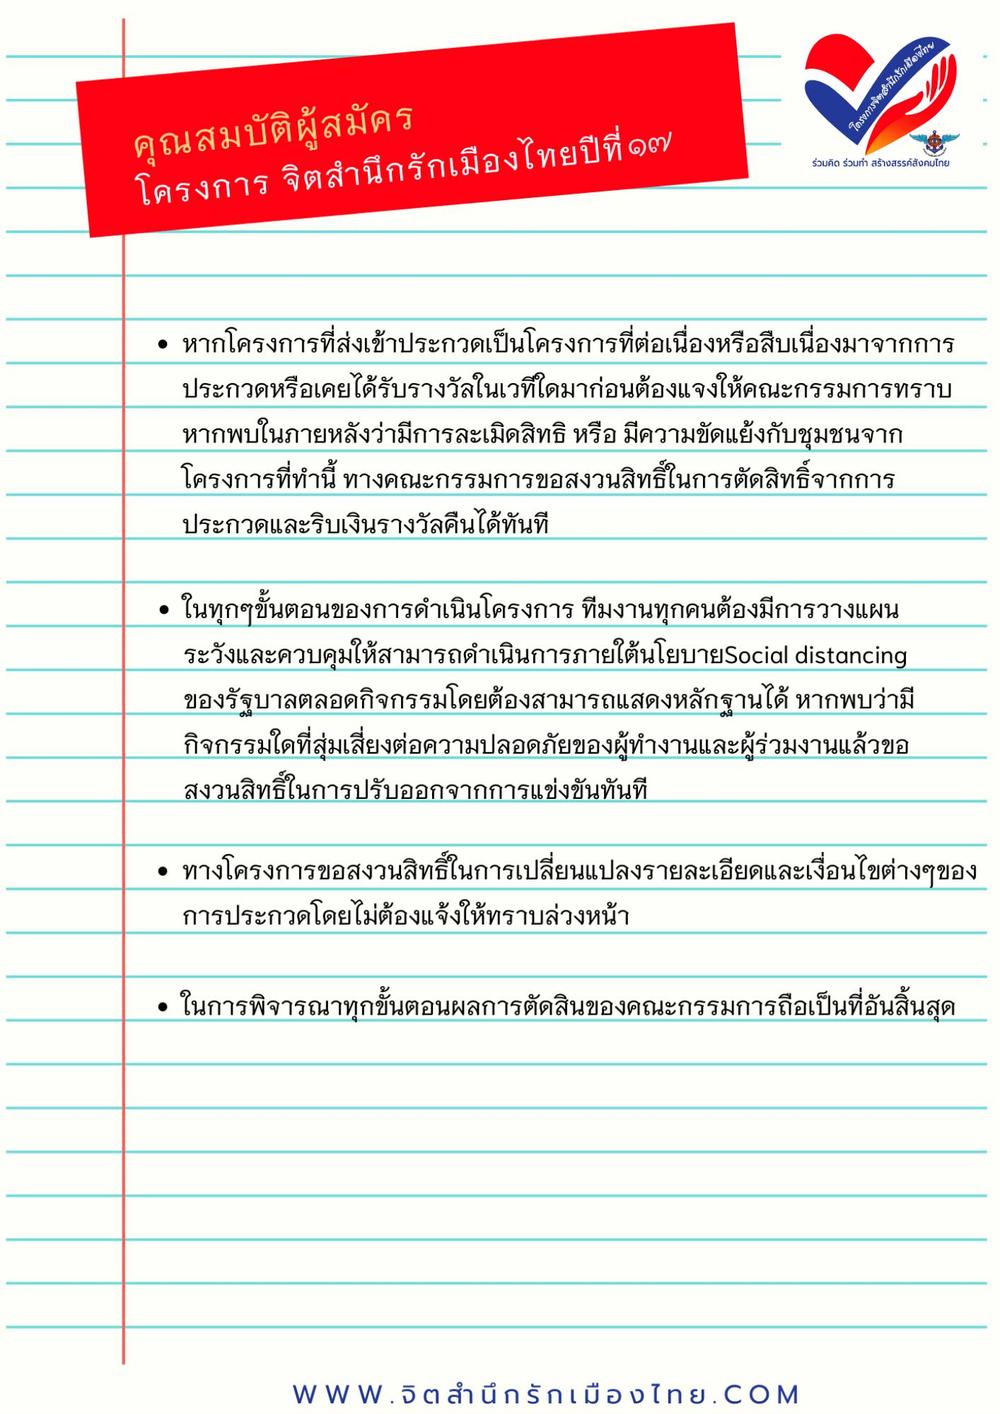 คุณสมบัติผู้สมัคร
โครงการ จิตสำนึกรักเมืองไทยปีที่ ๑๗
โครงการจิตสำนึกรักเมืองไทย
ร่วมคิด ร่วมทำ สร้างสรรค์สังคมไทย
• หากโครงการที่ส่งเข้าประกวดเป็นโครงการที่ต่อเนื่องหรือสืบเนื่องมาจากการ
ประกวดหรือเคยได้รับรางวัลในเวทีใดมาก่อนต้องแจงให้คณะกรรมการทราบ
หากพบในภายหลังว่ามีการละเมิดสิทธิ หรือ มีความขัดแย้งกับชุมชนจาก
โครงการที่ทำนี้ ทางคณะกรรมการขอสงวนสิทธิ์ในการตัดสิทธิ์จากการ
ประกวดและริบเงินรางวัลคืนได้ทันที
• ในทุกๆขั้นตอนของการดำเนินโครงการ ทีมงานทุกคนต้องมีการวางแผน
ระวังและควบคุมให้สามารถดำเนินการภายใต้นโยบายSocial distancing
ของรัฐบาลตลอดกิจกรรมโดยต้องสามารถแสดงหลักฐานได้ หากพบว่ามี
กิจกรรมใดที่สุ่มเสี่ยงต่อความปลอดภัยของผู้ทำงานและผู้ร่วมงานแล้วขอ
สงวนสิทธิ์ในการปรับออกจากการแข่งขันทันที
• ทางโครงการขอสงวนสิทธิ์ในการเปลี่ยนแปลงรายละเอียดและเงื่อนไขต่างๆของ
การประกวดโดยไม่ต้องแจ้งให้ทราบล่วงหน้า
• ในการพิจารณาทุกขั้นตอนผลการตัดสินของคณะกรรมการถือเป็นที่อันสิ้นสุด
WWW.จิตสำนึกรักเมืองไทย.COM